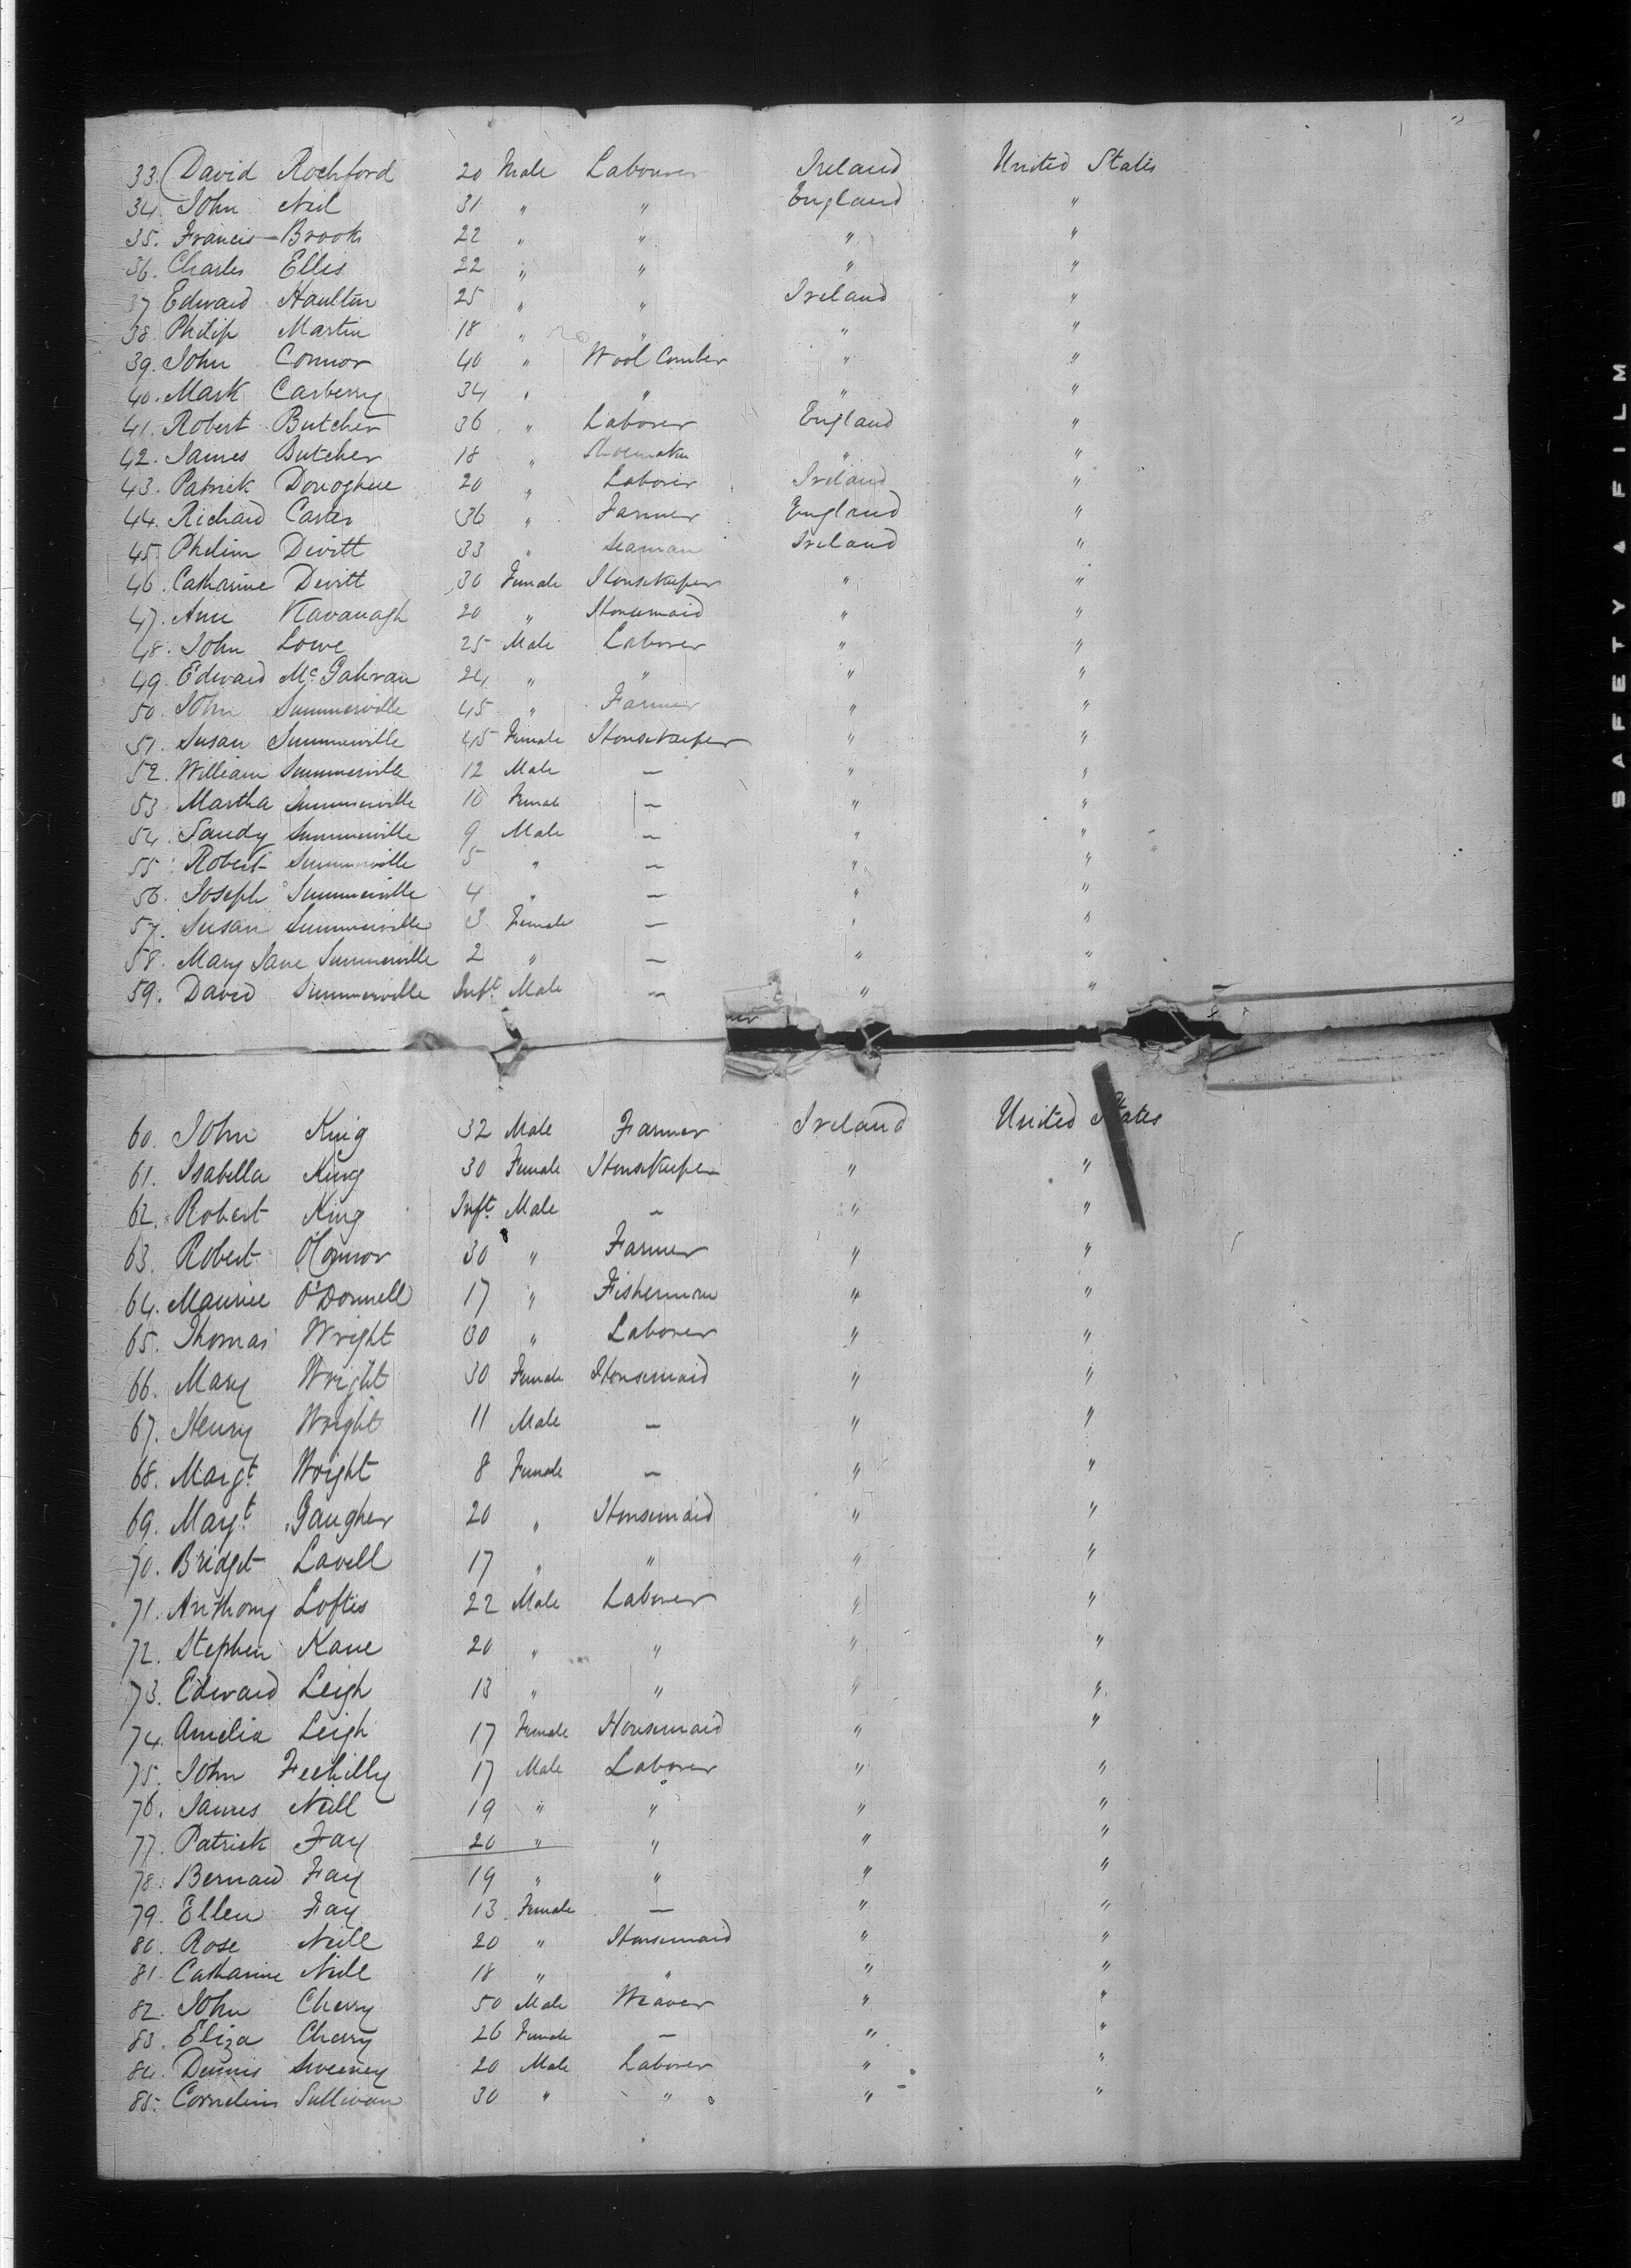 33. David Rochford 20 Male Labourer Ireland United States
34. John Neil 31 " " England "
35. Francis Brook 22 " " " "
36. Charles Ellis 22 " " " "
37 Edward Haulton 25 " " Ireland "
38 Philip Martin 18 " " " "
39. John Connor 40 " Wool Comber " "
40. Mark Carberry 34 " " " "
41. Robert Butcher 36 " Laborer England "
42. James Butcher 18 " Shoemaker " "
43. Patrick Donoghue 20 " Laborer Ireland "
44. Richard Carter 36 " Farmer England "
45. Phelim Devitt 33 " Seaman Ireland "
46. Catharine Devitt 30 Female Housekeeper " "
47. Ann Kavanagh 20 " Housemaid " "
48. John Lowe 25 Male Laborer " "
49. Edward McGahran 24 " " " "
50. John Summerville 45 " Farmer " "
51. Susan Summerville 45 Female Housekeeper " "
52. William Summerville 12 Male — " "
53 Martha Summerville 10 Female — " "
54. Sandy Summerville 9 Male — " "
55. Robert Summerville 5 " — " "
56. Joseph Summerville 4 " — " "
57. Susan Summerville 3 Female — " "
58. Mary Jane Summerville 2 " — " "
59. David Summerville Inft. Male — " "
60. John King 32 Male Farmer Ireland United States
61. Isabella King 30 Female Housekeeper " "
62. Robert King Inft. Male — " "
63. Robert O'Connor 30 " Farmer " "
64. Maurice O'Donnell 17 " Fisherman " "
65. Thomas Wright 30 " Laborer " "
66. Mary Wright 30 Female Housemaid " "
67. Henry Wright 11 Male — " "
68. Margt. Wright 8 Female — " "
69. Margt. Gaugher 20 " Housemaid " "
70. Bridget Lavell 17 " " " "
71. Anthony Loftis 22 Male Laborer " "
72. Stephen Kane 20 " " " "
73. Edward Leigh 13 " " " "
74. Amelia Leigh 17 Female Housemaid " "
75. John Feehilly 17 Male Laborer " "
76. James Neill 19 " " " "
77. Patrick Fay 20 " " " "
78. Bernard Fay 19 " " " "
79. Ellen Fay 13 Female — " "
80. Rose Neill 20 " Housemaid " "
81. Catharine Neill 18 " " " "
82. John Cherry 50 Male Weaver " "
83. Eliza Cherry 26 Female — " "
84. Dennis Sweeney 20 Male Laborer " "
85. Cornelius Sullivan 30 " " " "
SAFETY FILM